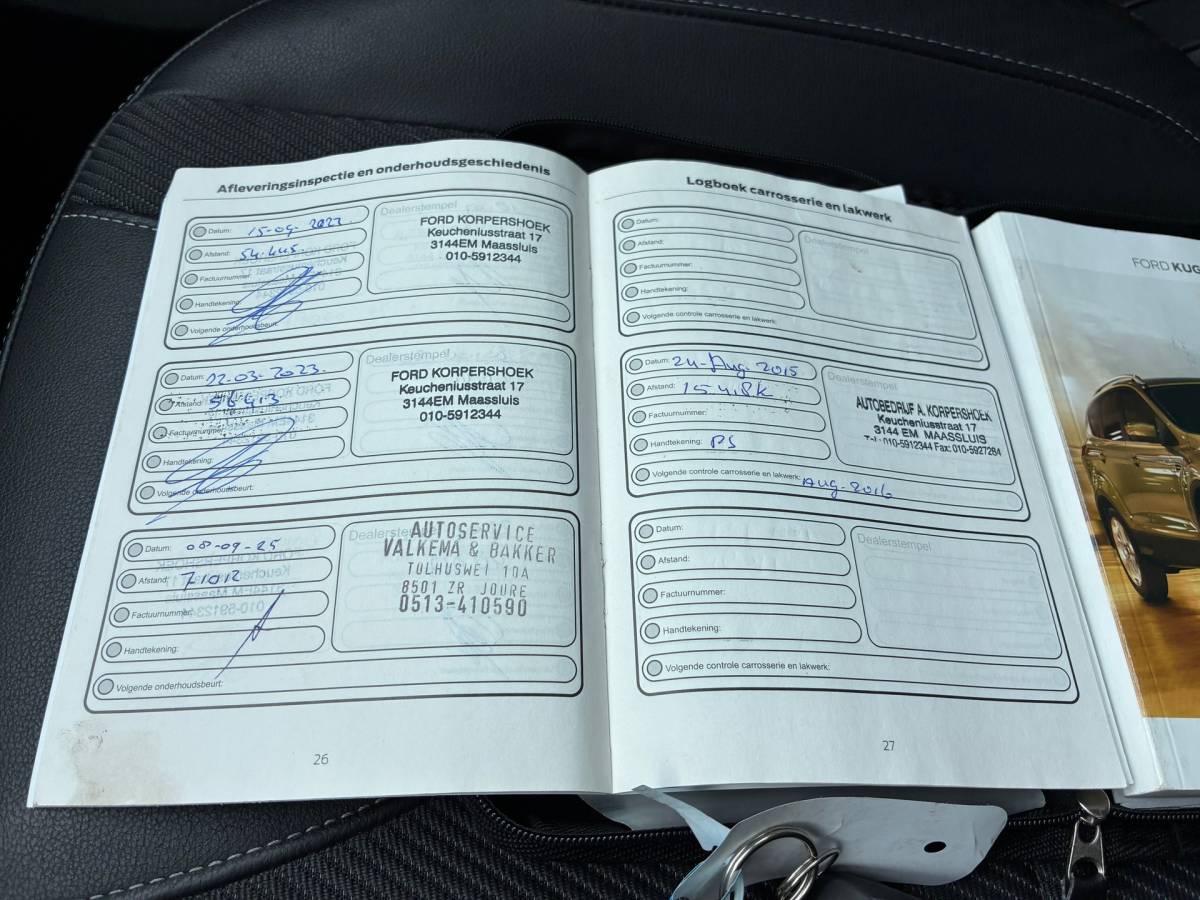 Afleveringsinspectie en onderhoudsgeschiedenis
Datum: 15-09-2022
Afstand: 54.445.
Factuurnummer:
Handtekening:
Volgende onderhoudsbeurt:
Dealerstempel
FORD KORPERSHOEK
Keucheniusstraat 17
3144EM Maassluis
010-5912344
Datum: 22-03-2023.
Afstand: 58413
Factuurnummer:
Handtekening:
Volgende onderhoudsbeurt:
Dealerstempel
FORD KORPERSHOEK
Keucheniusstraat 17
3144EM Maassluis
010-5912344
Datum: 08-09-25
Afstand: 71012
Factuurnummer:
Handtekening:
Volgende onderhoudsbeurt:
Dealerstempel
AUTOSERVICE
VALKEMA & BAKKER
TOLHUSWEI 10A
8501 ZR JOURE
0513-410590
26
Logboek carrosserie en lakwerk
Datum:
Afstand:
Factuurnummer:
Handtekening:
Volgende controle carrosserie en lakwerk:
Dealerstempel
Datum: 24-Aug-2015
Afstand: 15418K
Factuurnummer:
Handtekening: PS
Volgende controle carrosserie en lakwerk: Aug-2016
Dealerstempel
AUTOBEDRIJF A. KORPERSHOEK
Keucheniusstraat 17
3144 EM MAASSLUIS
Tel: 010-5912344 Fax: 010-5927284
Datum:
Afstand:
Factuurnummer:
Handtekening:
Volgende controle carrosserie en lakwerk:
Dealerstempel
27
FORD KUG